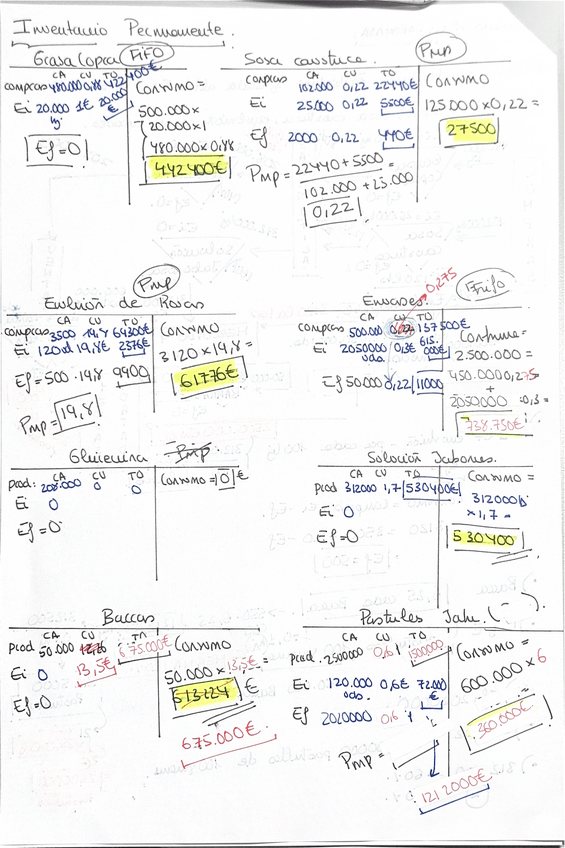 Inventario Permanente.
Grasa Copra FIFO
CA CU TO
compras 480.000 0,88 422400€
Ei 20.000 1€ 20.000€
kg.
Ef=0
Consumo =
500.000x
20.000x1
480.000x0,88
442400€
Sosa caustica. PMP
CA CU TO
compras 102.000 0,22 22440€
Ei 25000 0,22 5500€
Ef 2000 0,22 440€
PMP = 22440+5500 =
102.000 + 25.000
0,22
Consumo
125.000x0,22 =
27500
PMP
Esencia de Rosas
CA CU TO
compras 3500 19,8 69300€
Ei 120ud 19,8€ 2376€
Ef=500 · 19,8 9900
PMP = 19,8
Consumo
3120 x 19,8 =
61776€
0,275
Envases. Fifo
CA CU TO
compras 500.000 137500€
Ei 2050000 0,3€ 615.000€
uds.
Ef 50.000 0,22 11000
Consumo =
2.500.000 =
450.000 0,275
+
2050000 · 0,3 =
738.750€
Glicerina PMP
CA CU TO
prod: 208.000 0 0
Ei 0
Ef=0
Consumo = 0 €
Solución Jabones.
CA CU TO
prod 312000 1,7 530400€
Ei 0
Ef=0
Consumo =
312000
x 1,7 =
530400
Barras
CA CU TO
prod. 50.000 675.000€
Ei 0 13,5€
Ef=0
Consumo
50.000 x 13,5€ =
513224 €
675.000€
Pastilles Jabo. ( )
CA CU TO
prod. 2500000 0,6 1500000
Ei 120.000 0,6€ 72.000€
uds.
Ef 2020000 0,6
PMP =
1212000€
Consumo =
600.000 x 6
360.000€